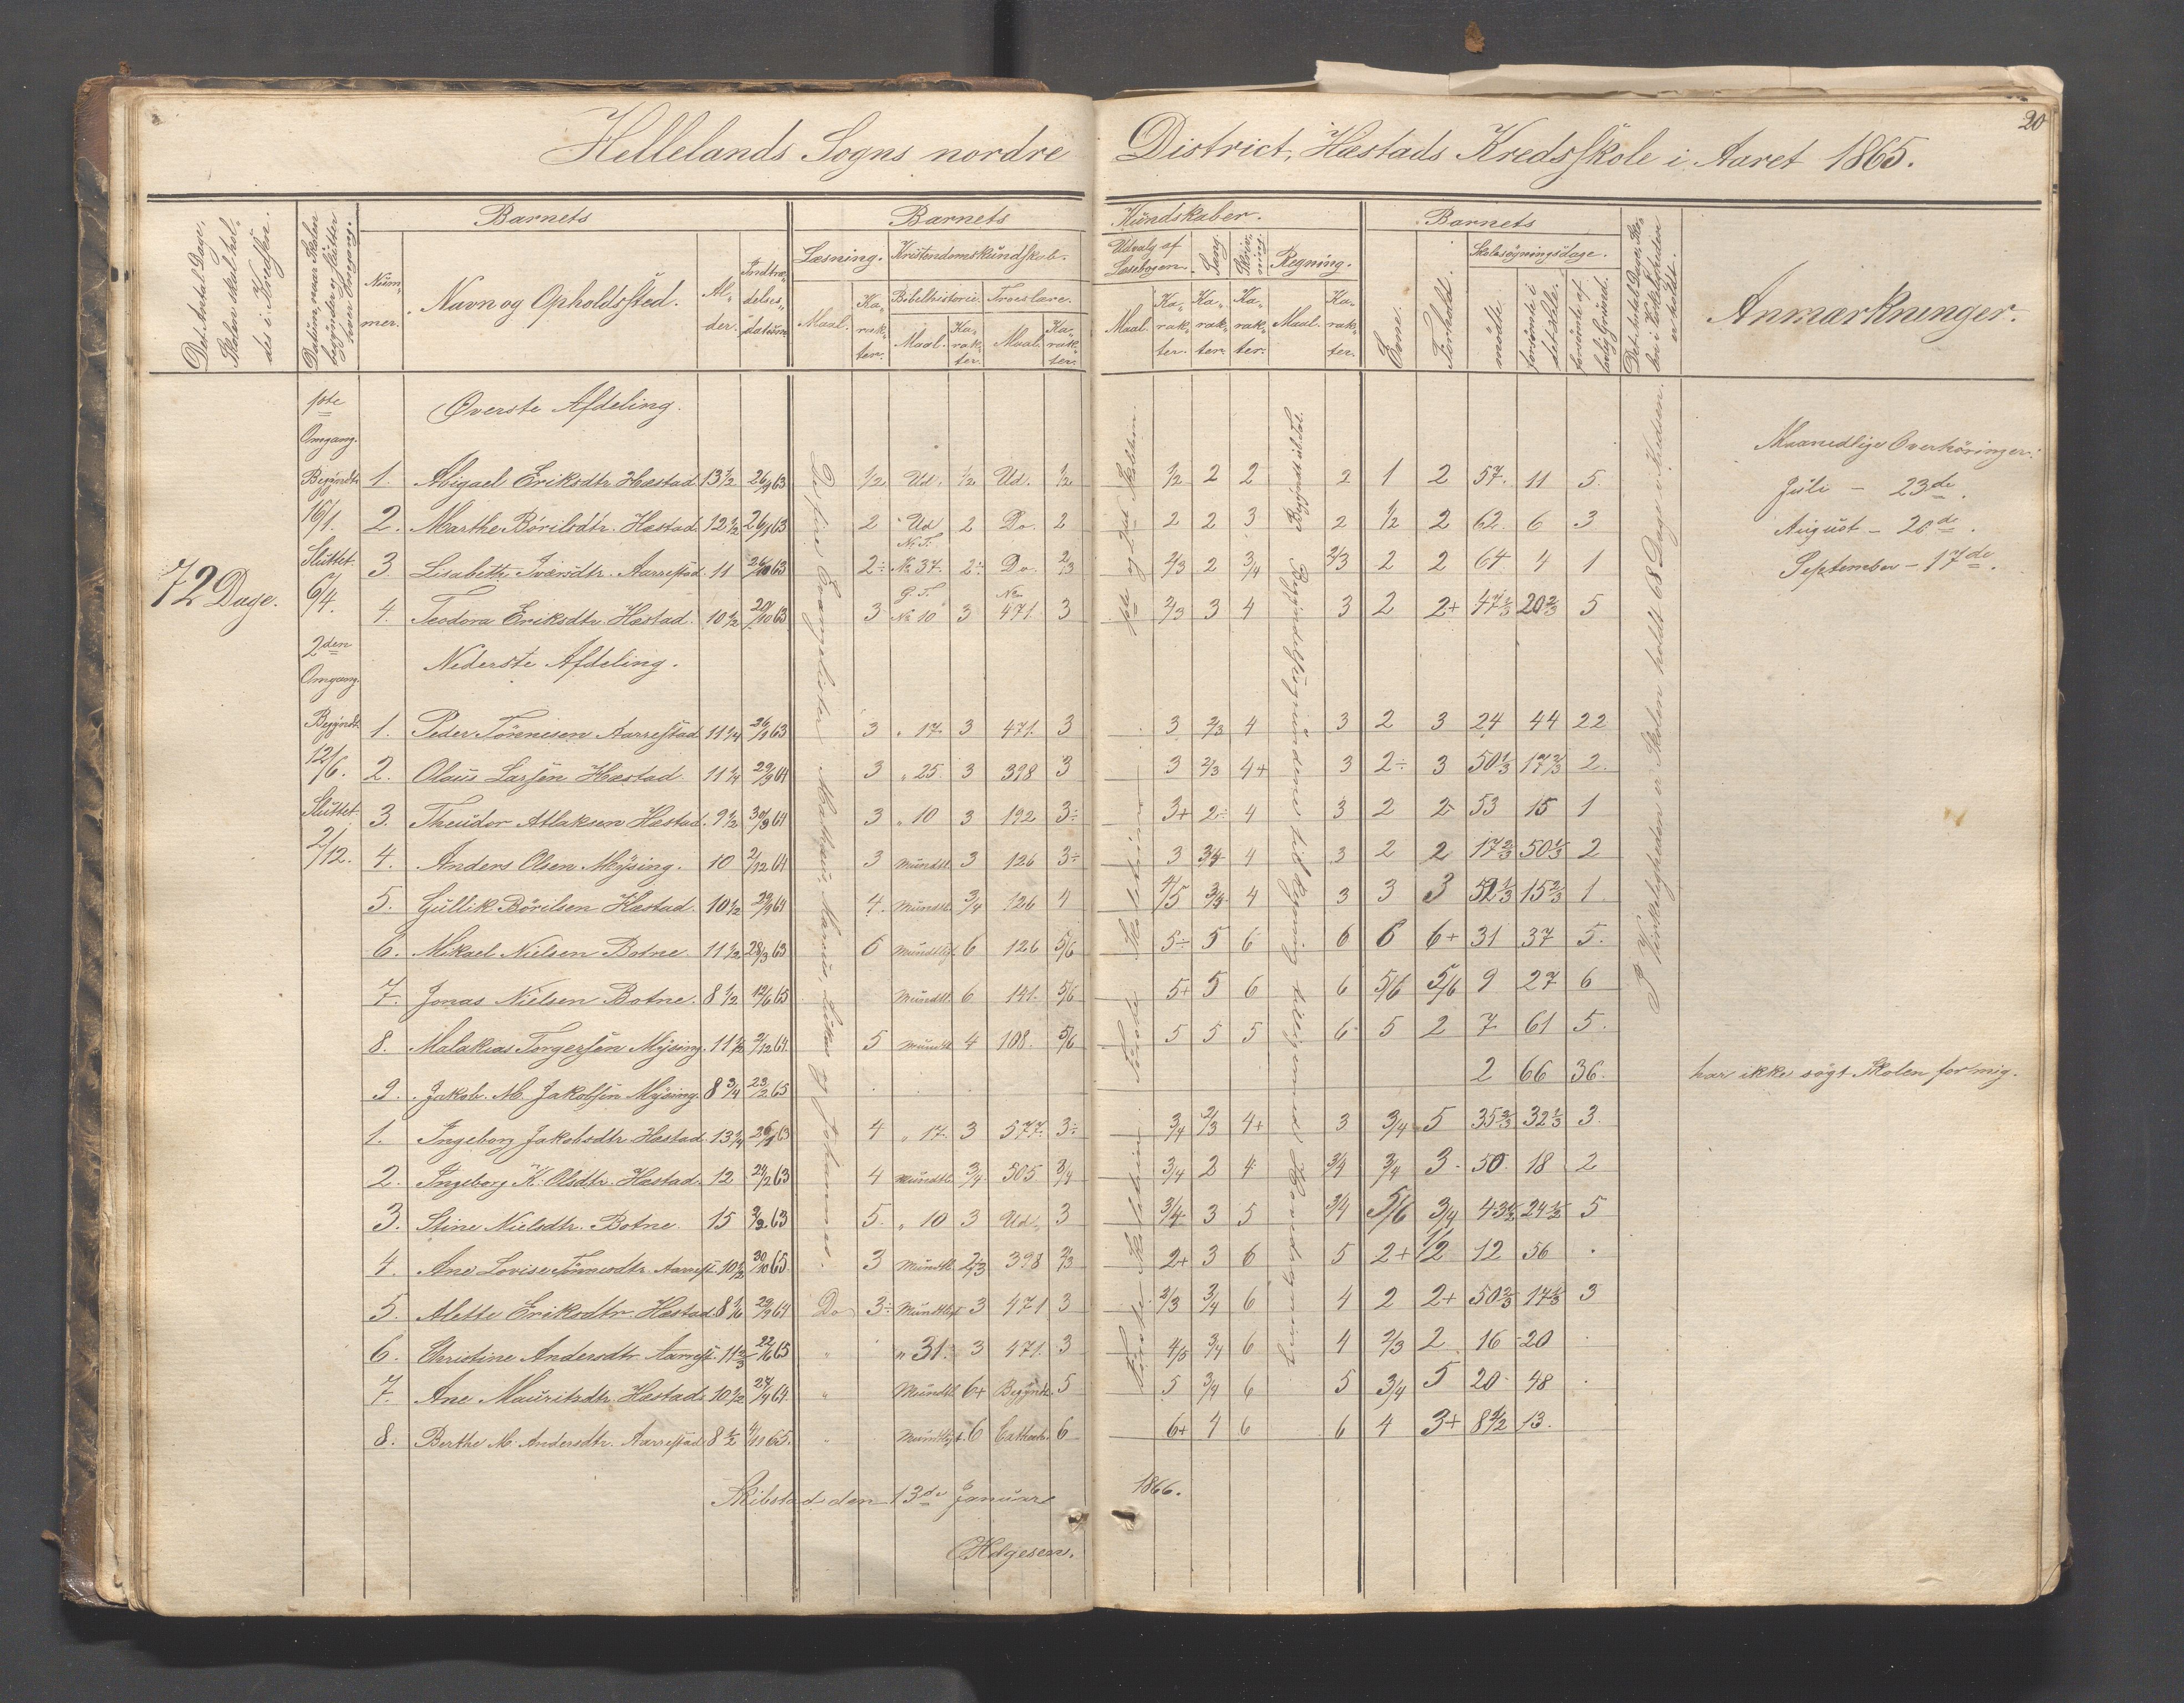 20
Hellelands Sogns nordre District, Hæstads Kredsskole i Aaret 1865.
Det Antal Dage, Skolen skal holdes i Kredsen.
Datum, naar Skolen begynder og slutter hver Omgang.
Barnets
Nummer.
Navn og Opholdssted.
Alder.
Indtrædelsesdatum
Barnets Kundskaber.
Læsning. Kristendomskundskab. Udvalg af Læsebogen. Sang. Skrivning. Regning.
Bibelhistorie. Troeslære.
Maal. Karakter. Maal. Karakter. Maal. Karakter. Maal. Karakter. Karakter. Karakter. Maal. Karakter.
Barnets
Evne. Forhold. Skolesøgningsdage.
mødte forsømte i det Hele. forsømte af lovlig Grund.
Det Antal Dage, Skolen i Virkeligheden er holdt.
Anmærkninger.
72 Dage.
1ste Omgang.
Begyndt 16/1.
Sluttet 6/4.
2den Omgang.
Begyndt 12/6.
Sluttet 2/12.
De fire Evangelister Matthæus, Markus, Lukas og Johannes.
I Virkeligheden er Skolen holdt 68 Dage i Kredsen.
Øverste Afdeling.
Maanedlige Overhöringer:
Juli – 23de.
August – 20de.
September – 17de.
1. Abigael Eriksdtr. Hæstad 13 1/2 26/9 63 1/2 Ud. 1/2 Ud. 1/2 1/2 2 2 2 1 2 57. 11 5.
2. Marthe Børilsdtr. Hæstad. 12 1/2 26/9 63 2 Ud 2 Do. 2 2 2 3 2 1/2 2 62. 6 3
3. Lisabeth Iversdtr. Aarrestad. 11 63 2÷ N.T. No 37. 2÷ Do. 2/3 2/3 2 3/4 2/3 2 2 64 4 1
4. Teodora Eriksdtr. Hæstad. 10 1/2 63 3 G.T. No 10 3 No 471. 3 2/3 3 4 3 2 2+ 47 1/3 20 2/3 5
Nederste Afdeling.
1. Peder Tønnesen Aarrestad 11 1/4 26/9 63 3 „ 17. 3 471. 3 3 2/3 4 3 2 3 24 44 22
2. Olaus Larsen Hæstad 11 1/4 29/9 64 3 „ 25. 3 398 3 3 2/3 4+ 3 2÷ 3 50 1/3 17 2/3 2.
3. Theudor Atlaksen Hæstad. 9 1/2 30/9 64 3 „ 10 3 192 3÷ 3+ 2÷ 4 3 2 2 53 15 1
4. Anders Olsen Mysing. 10 2/12 64 3 Mundtl. 3 126 3÷ 3 3/4 4 3 2 2 17 2/3 50 1/3 2
5. Gullik Børilsen Hæstad. 10 1/2 29/9 64 4. Mundtl. 3/4 126 4 4/5 3/4 4 3 3 3 52 1/3 15 2/3 1.
6. Mikael Nielsen Botne. 11 1/2 28/3 63 6 Mundtligt 6 126 5/6 5÷ 5 6 6 6 6+ 31 37 5.
7. Jonas Nielsen Botne. 8 1/2 12/6 65 Mundtl. 6 141. 5/6 5+ 5 6 6 5/6 5/6 9 27 6
8. Malakias Torgersen Mysing. 11 1/2 2/12 64. 5 Mundtl. 4 108. 5/6 5 5 5 6 5 2 7 61 5.
9. Jakob M. Jakobsen Mysing. 8 3/4 23/2 65 2 66 36. har ikke søgt Skolen for mig.
1. Ingeborg Jakobsdtr. Hæstad. 13 1/4 26/9 63 4 „ 17. 3 577. 3÷ 3/4 2/3 4+ 3 3/4 5 35 2/3 32 1/3 3.
2. Ingeborg K. Olsdtr. Hæstad. 12 24/2 63 4 Mundtl. 3/4 505. 3/4 3/4 2 4 3/4 3/4 3 50 18 2
3. Stine Nielsdtr. Botne. 15 63 5. „ 10 3 Ud. 3 3/4 3 5 3/4 5/6 3/4 43 1/2 24 1/2 5
4. Ane Lovise Tønnesdtr. Aarrest. 10 1/2 30/10 65. 3 Mundtl. 2/3 398 2/3 2+ 3 6 5 2+ 1/2 12 56
5. Alette Eriksdtr. Hæstad. 8 1/6 29/9 64 Do 3÷ Mundtligt 3 471 3 2/3 3/4 6 4 2 2+ 50 2/3 17 1/3 3
6. Christine Andersdtr. Aarrest. 11 2/3 22/6 65 „ „ 31. 3 471. 3 4/5 3/4 6 4 2/3 2 16 20
7. Ane Mauritzdtr. Hæstad. 10 1/2 64. „ Mundtl. 6+ Begyndt. 5 5 3/4 6 5 3/4 5 20 48
8. Berthe M. Andersdtr. Aarrestad 8 1/2 4/11 65. „ Mundtligt. 6 Cathech. 6 6+ 4 6 6 4 3+ 8 1/2 13.
Skibstad den 13de Januar 1866.
Helgesen.